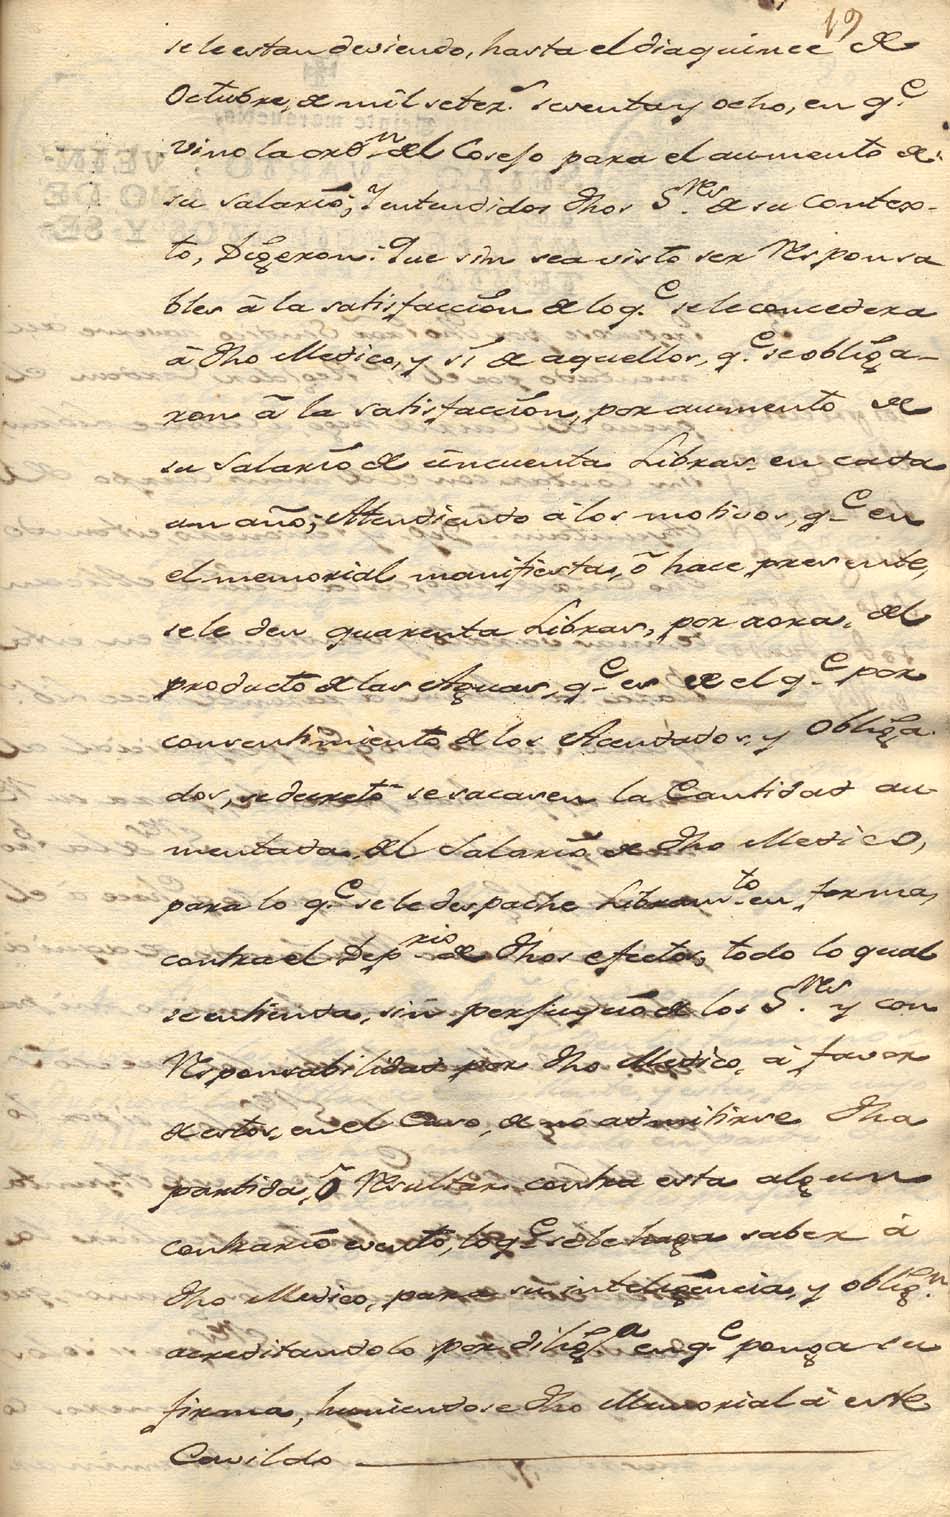 19
se le estan deviendo, hasta el dia quince de
Octubre, de mil setez.s setenta y ocho, en q.e
vino la ordn del Consejo para el aumento de
su salario; Y entendidos dhos S.res de su contex-
to, Digeron: Que sin sea visto ser Respponsa
bles â la satisfaccion de lo q.e se le concedera
â dho Medico, y sì de aquellos, q.e se obliga-
ron â la satisfaccion, por aumento de
su salario de cinquenta Libras en cada
un año; Atendiendo â los motivos, q.e en
el memorial manifiesta, ô hace presente,
se le den quarenta Libras, por aora, del
producto de las Aguas, q.e es de el q.e por
consentimiento de los Acendados, y Obliga
dos, se decretò se sacasen la Cantidad au-
mentada del Salario de dho Medico,
para lo q.e se le despache Libram.to en forma,
contra el Dep.rio de dhos efectos, todo lo qual
se entienda, sin perjuycio de los S.res y con
Responsabilidad por dho Medico, â favor
de estos, en el Caso, de no admitirse dha
partida, ô Resultar contra esta algun
contrario evento, lo q.e se le haga saber â
dho Medico, para su inteligencia, y oblig.n
acreditandolo por dilig.a en q.e ponga su
firma, huniendose dho Memorial â este
Cavildo